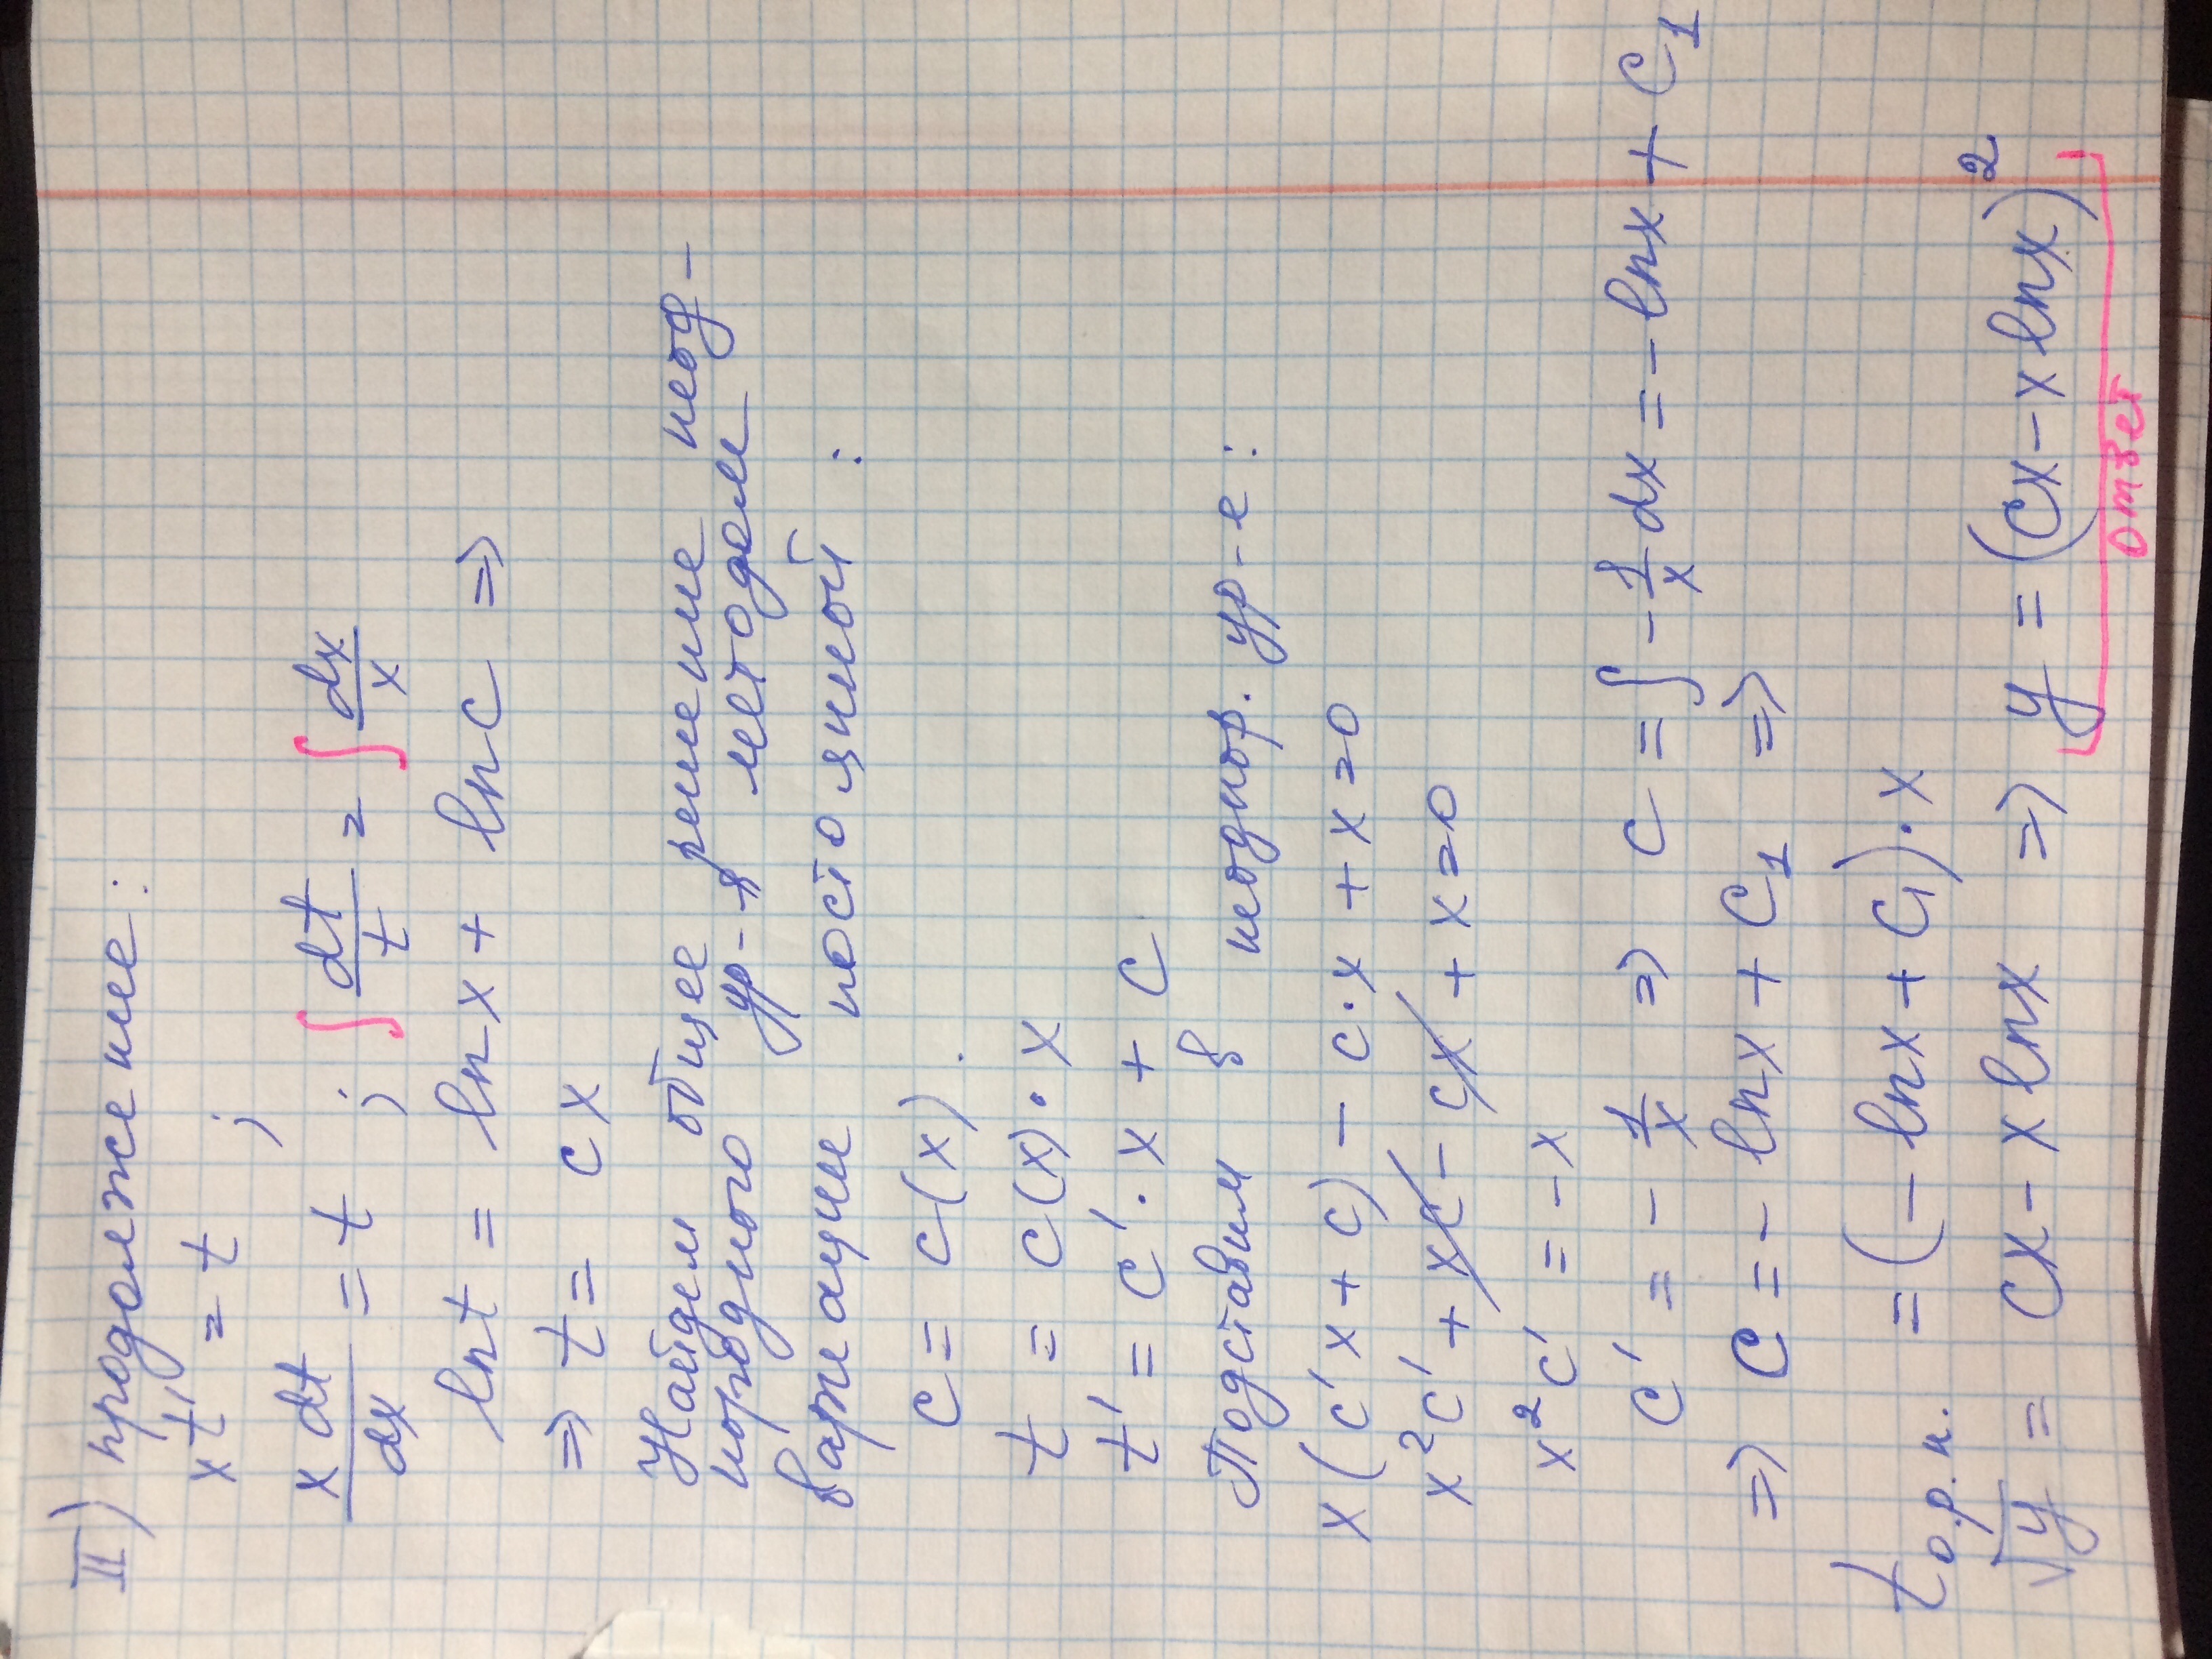 II) продолжение:
xt' = t ;
x dt/dx = t ; ∫ dt/t = ∫ dx/x
ln t = ln x + ln c ⇒
⇒ t = cx
Найдем общее решение неод-
нородного ур-я методом
вариации постоянной :
c = c(x).
t = c(x)·x
t' = c'·x + c
Подставим в неоднор. ур-е :
x(c'x + c) - c·x + x = 0
x²c' + xc - cx + x = 0
x²c' = -x
c' = -1/x ⇒ c = ∫ -1/x dx = -ln x + c₁
⇒ c = -ln x + c₁ ⇒
t о.р.н. = (-ln x + c₁)·x
√y = cx - x ln x ⇒ y = (cx - x ln x)²
ответ